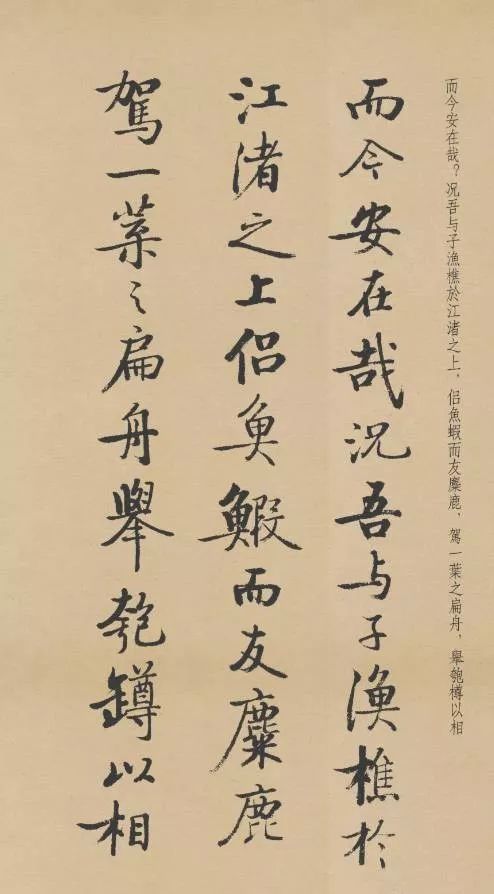 而今安在哉？况吾与子漁樵於江渚之上，侣魚蝦而友麋鹿，駕一葉之扁舟，舉匏樽以相
而今安在哉況吾与子漁樵於
江渚之上侣魚鰕而友麋鹿
駕一葉之扁舟舉匏鐏以相